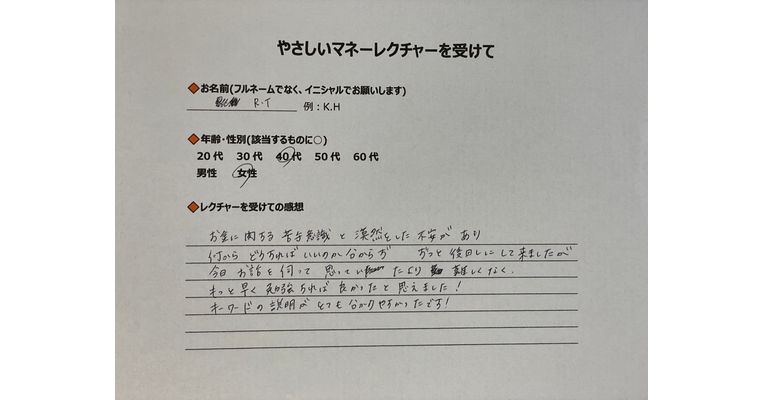 やさしいマネーレクチャーを受けて
◆お名前(フルネームでなく、イニシャルでお願いします)
R.T 例：K.H
◆年齢・性別(該当するものに○)
20代 30代 40代 50代 60代
男性 女性
◆レクチャーを受けての感想
お金に関する苦手意識と漠然とした不安があり
何から どうすればいいのか分からず ずっと後回しにして来ましたが
今日お話を伺って 思っていたより 難しくなく、
もっと早く勉強すれば良かったと思えました!
キーワードの説明がとても分かりやすかったです!